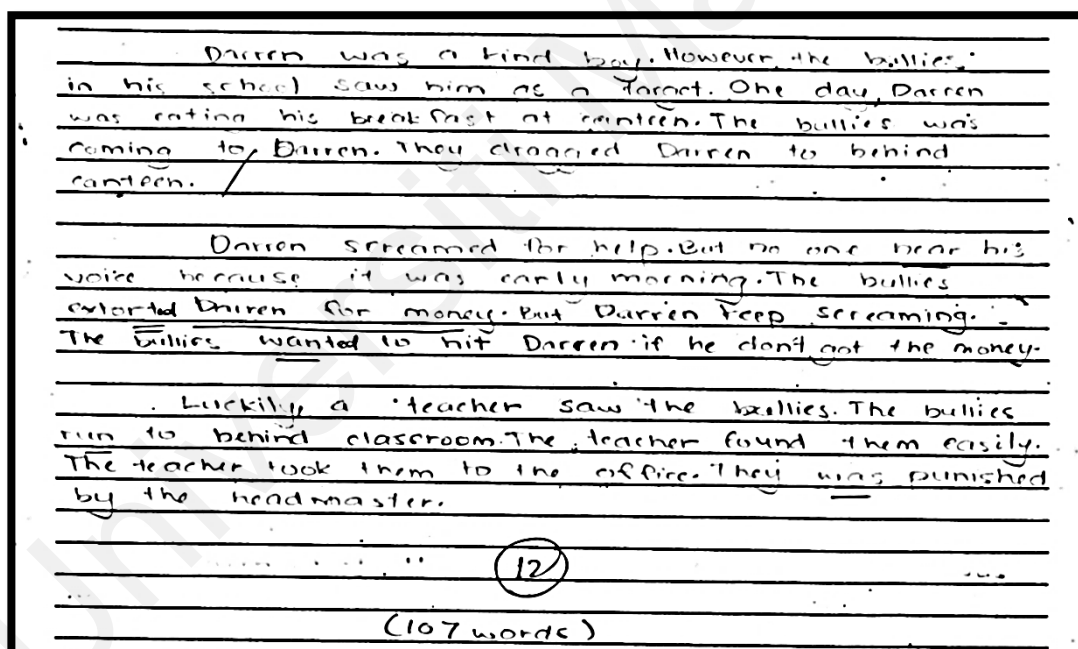 Darren was a kind boy. However, the bullies
in his school saw him as a target. One day, Darren
was eating his breakfast at canteen. The bullies was
coming to Darren. They dragged Darren to behind
canteen.
Darren screamed for help. But no one hear his
voice because it was early morning. The bullies
extorted Darren for money. But Darren keep screaming.
The bullies wanted to hit Darren if he don't got the money.
Luckily, a teacher saw the bullies. The bullies
run to behind classroom. The teacher found them easily.
The teacher took them to the office. They was punished
by the headmaster.
12
(107 words)